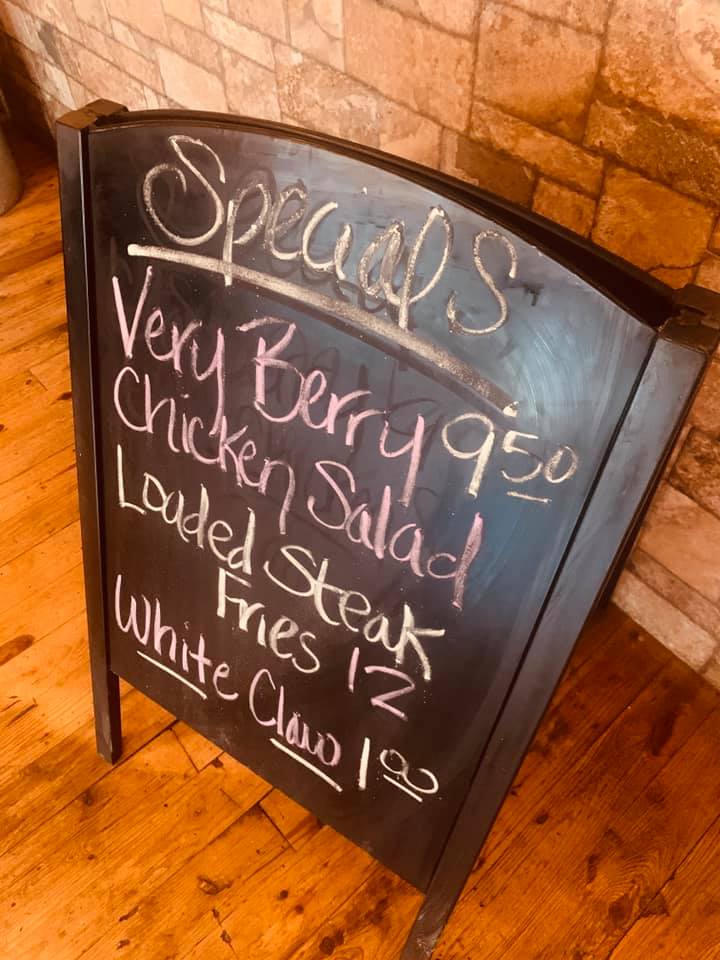 Specials
Very Berry 9 50
Chicken Salad
Loaded Steak
Fries 12
White Claw 1 00